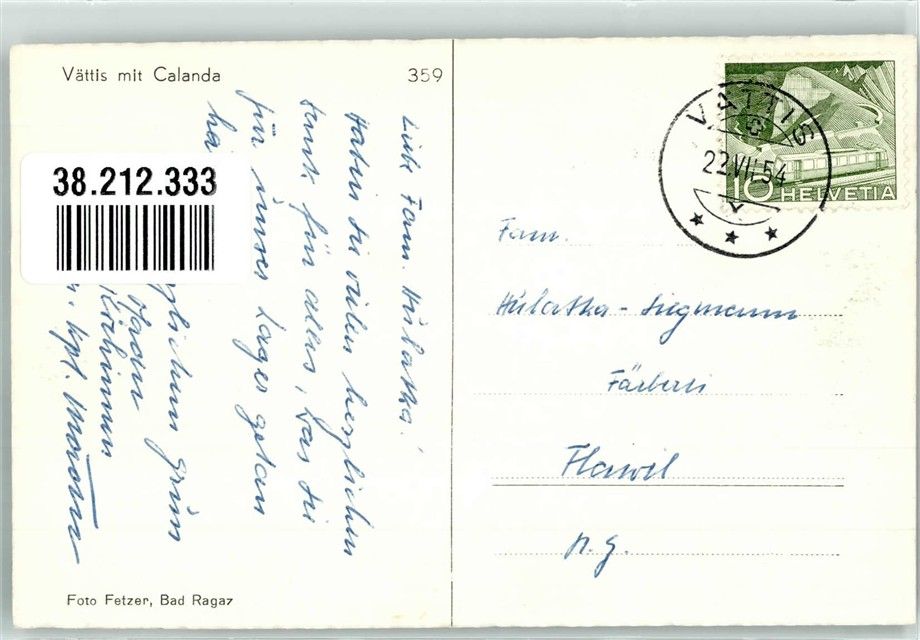 Vättis mit Calanda
359
38.212.333
Liebe Fam. Hulatka!
Haben Sie vielen herzlichen
Dank für alles, was Sie
für unser Lager getan
ha
glichem Gruss
Kpl.
Foto Fetzer, Bad Ragaz
VÄTTIS
22.VII.54
10 HELVETIA
Fam.
Hulatka-Siegmann
Färberei
Flawil